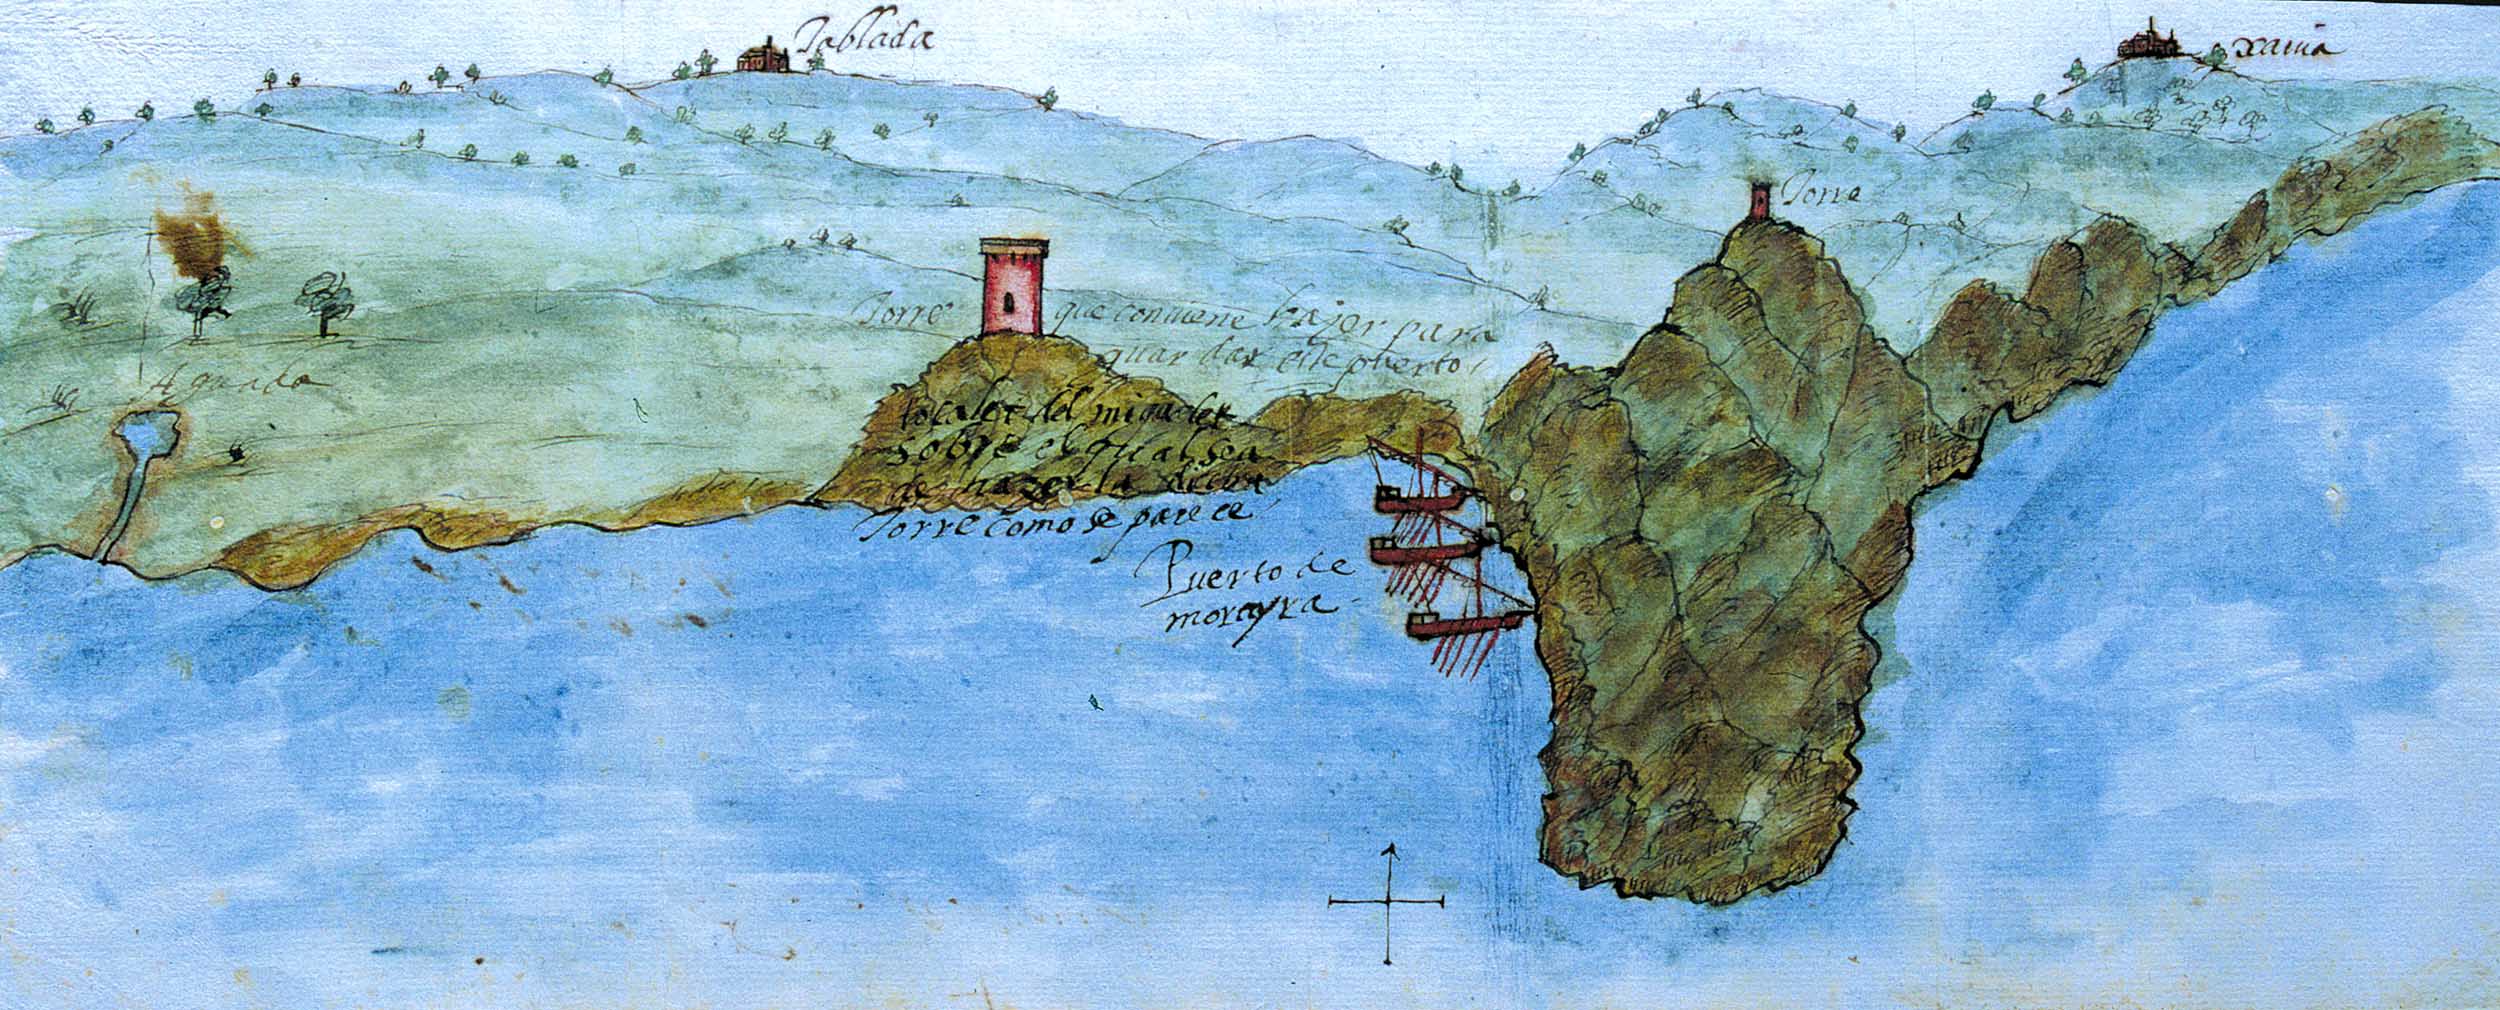 Tablada
xauia
Torre
Torre que conuiene hazer para
guardar este puerto
Aguada
sobre el qual sea
de hazer la dicha
Torre como se parece
Puerto de
morayra